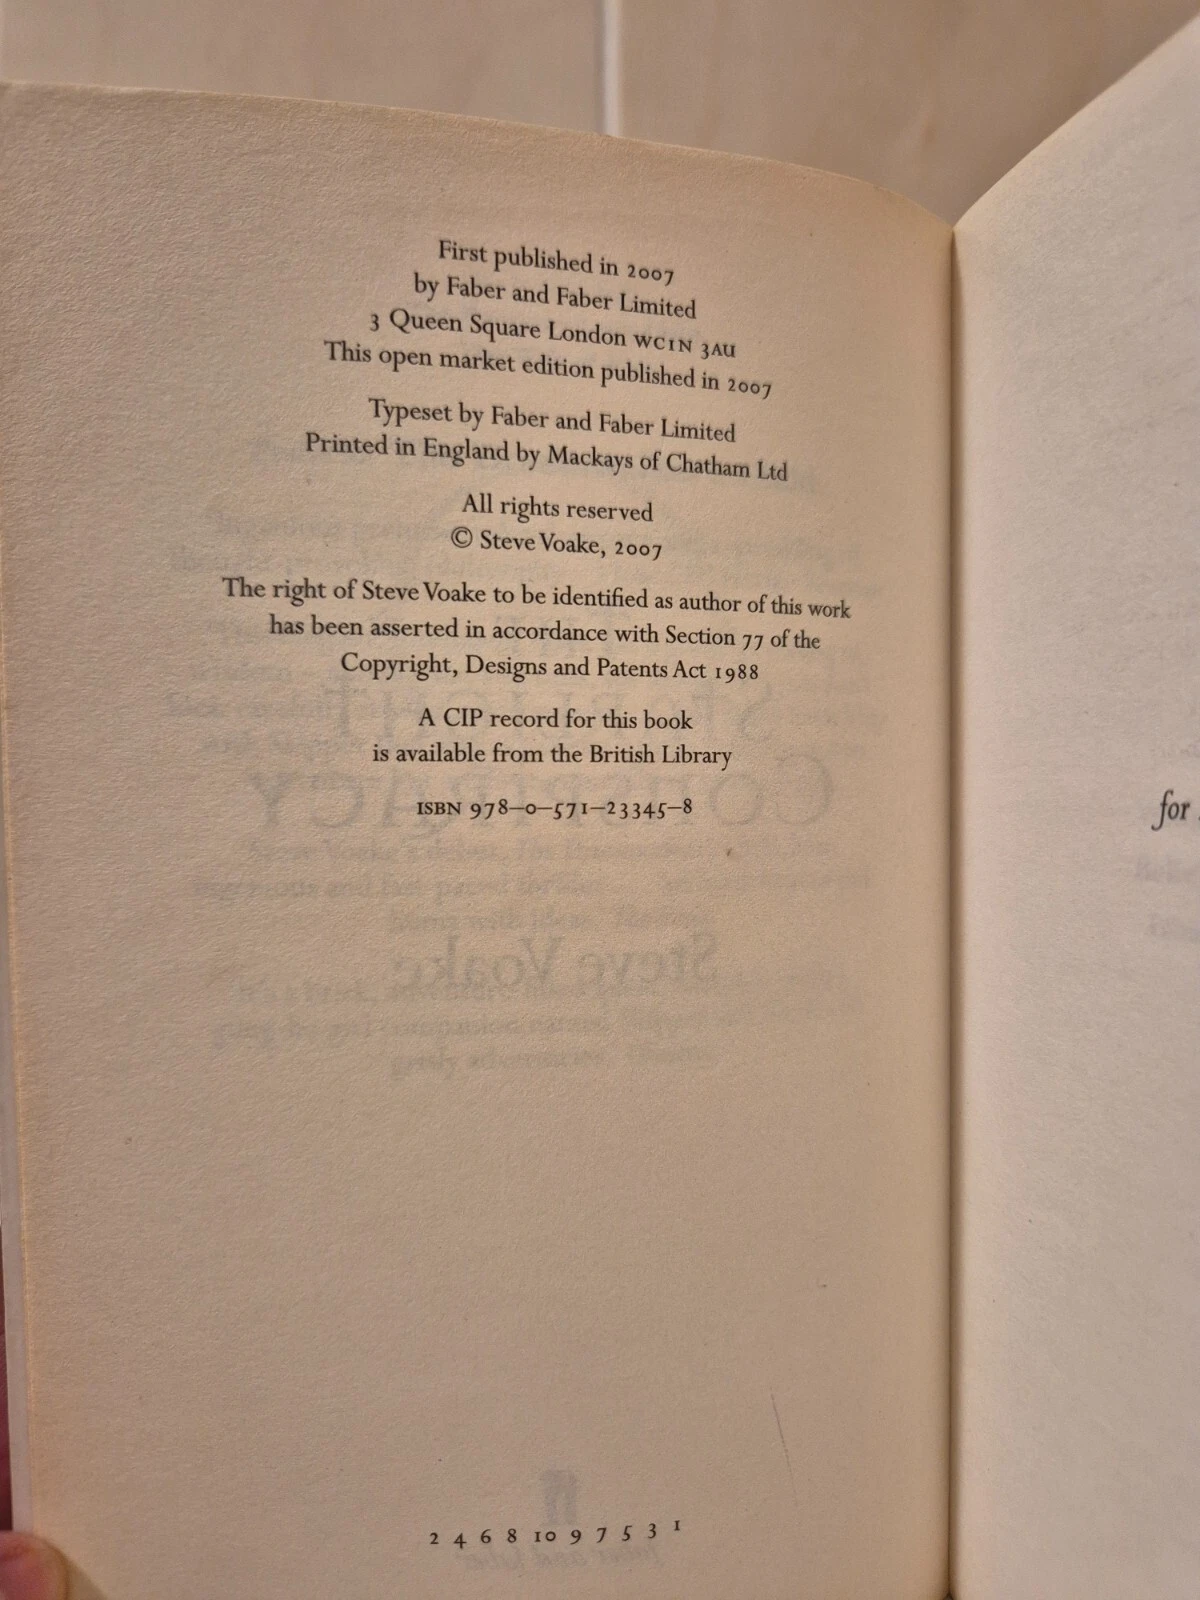 First published in 2007
by Faber and Faber Limited
3 Queen Square London WC1N 3AU
This open market edition published in 2007
Typeset by Faber and Faber Limited
Printed in England by Mackays of Chatham Ltd
All rights reserved
© Steve Voake, 2007
The right of Steve Voake to be identified as author of this work
has been asserted in accordance with Section 77 of the
Copyright, Designs and Patents Act 1988
A CIP record for this book
is available from the British Library
ISBN 978–0–571–23345–8
Steve Voake
2 4 6 8 10 9 7 5 3 1
for